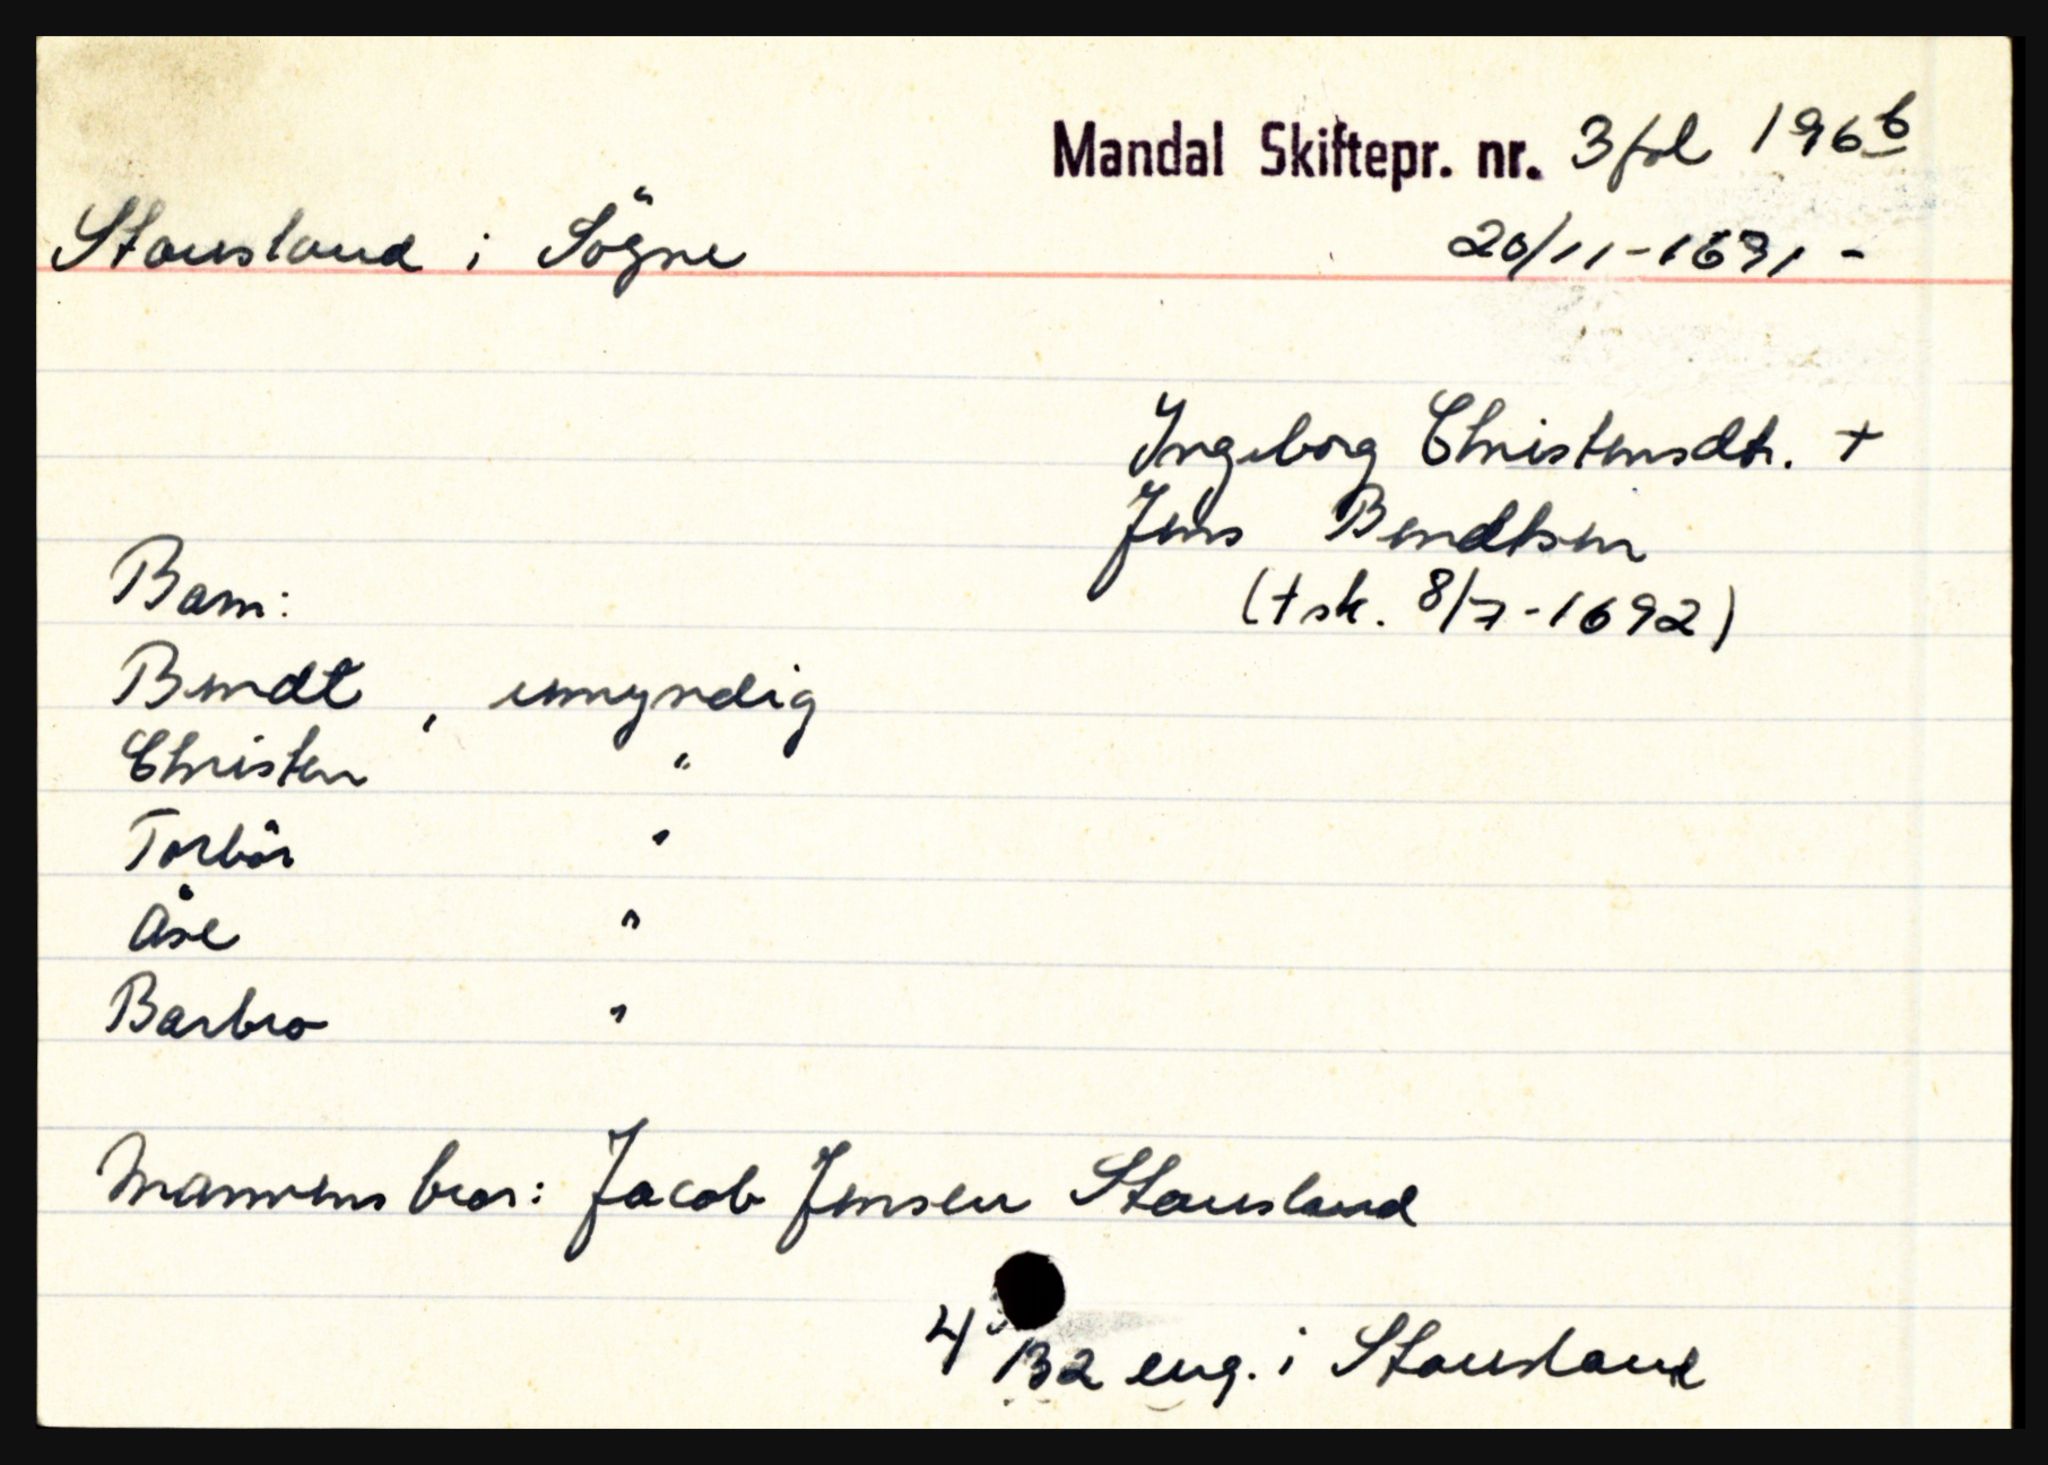 Mandal Skiftepr. nr. 3 fol 196 b
Stausland i Sögne 20/11-1691 -
Ingeborg Christensdtr. +
Jens Bendtsen
Barn: (+ sk. 8/7-1692)
Bendt, umyndig
Christen "
Torbör "
Åse "
Barbro "
Mannens bror: Jacob Jensen Stausland
4 B2 eng. i Stausland